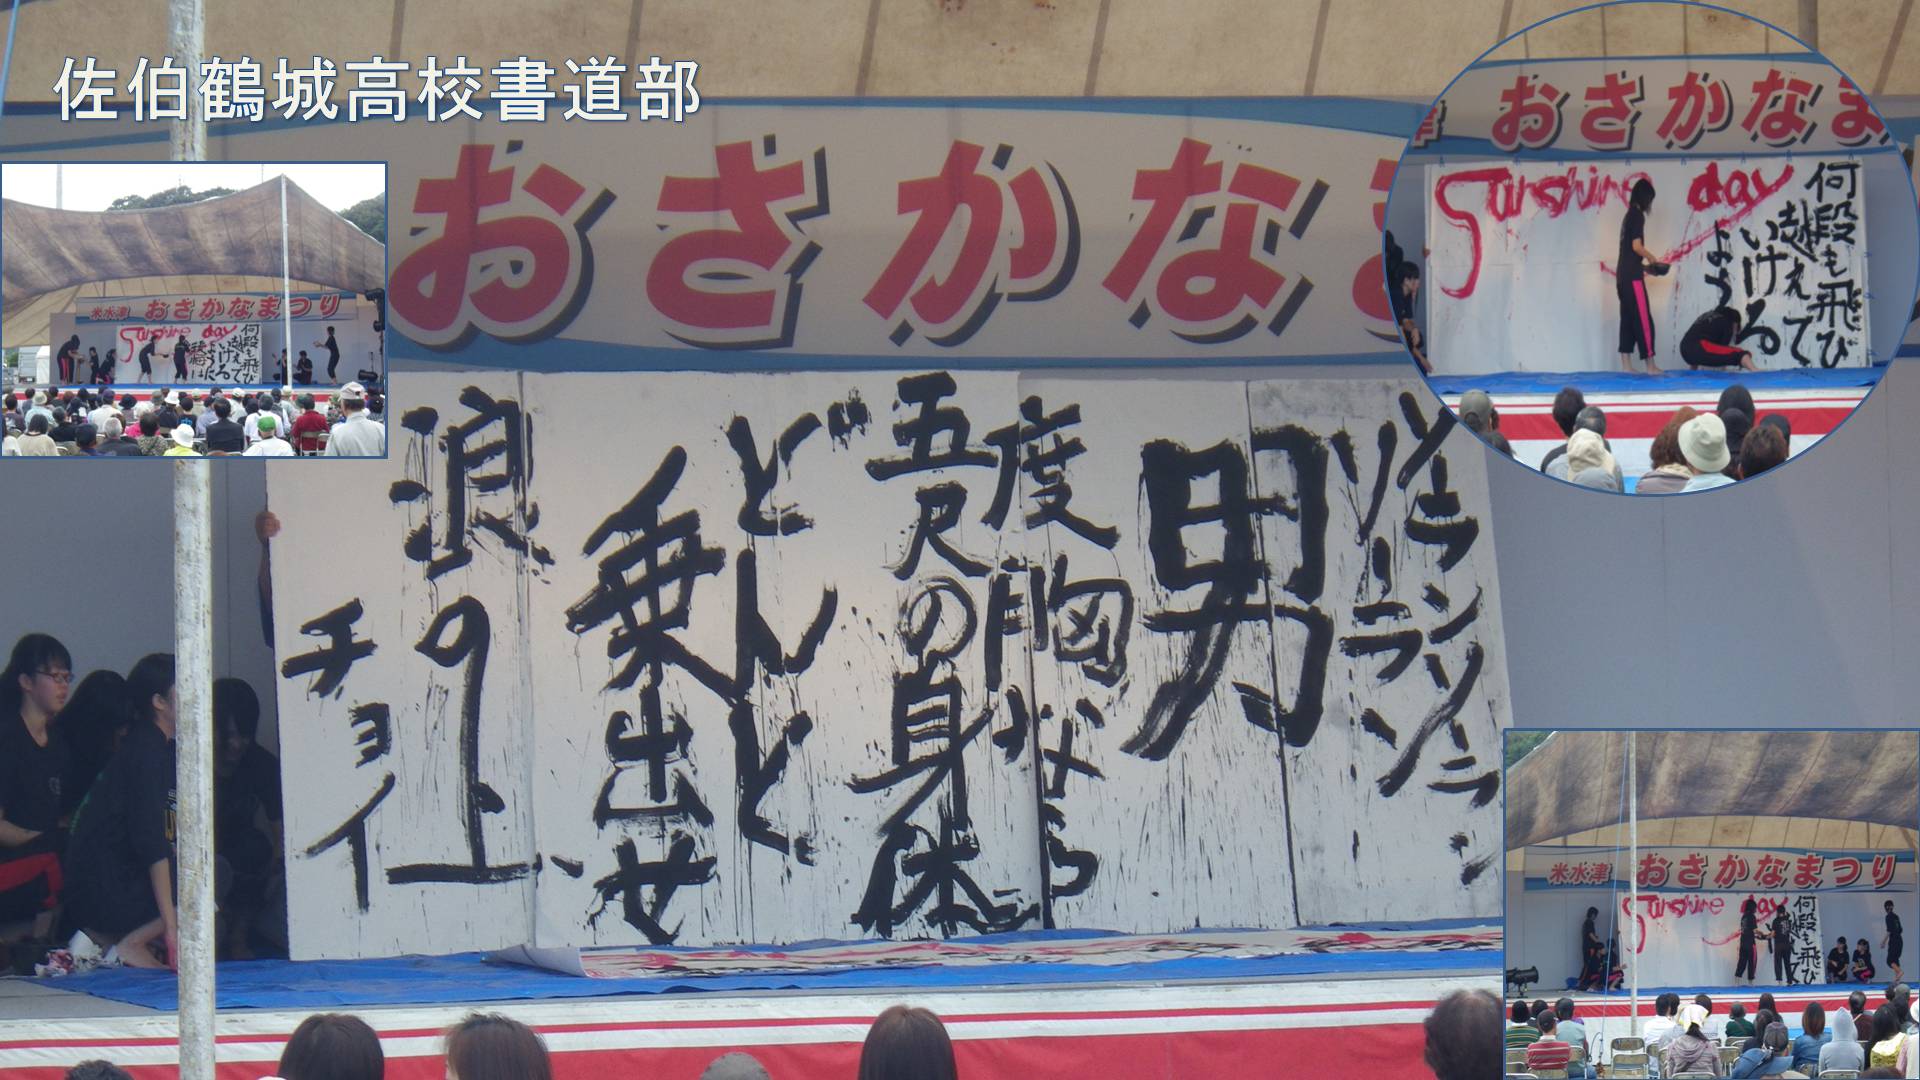 佐伯鶴城高校書道部
おさかなま
ソーランソーラン
ソーラン
男
度胸なら
五尺の身体
どんと
乗出せ
浪の上、
チョイ
米水津 おさかなまつり
Sunshine day
何段も飛び
越えて
いける
ように
津 おさかなま
Sunshine day
何段も飛び
越えて
いける
よう
米水津 おさかなまつり
Sunshine day
何段も飛び